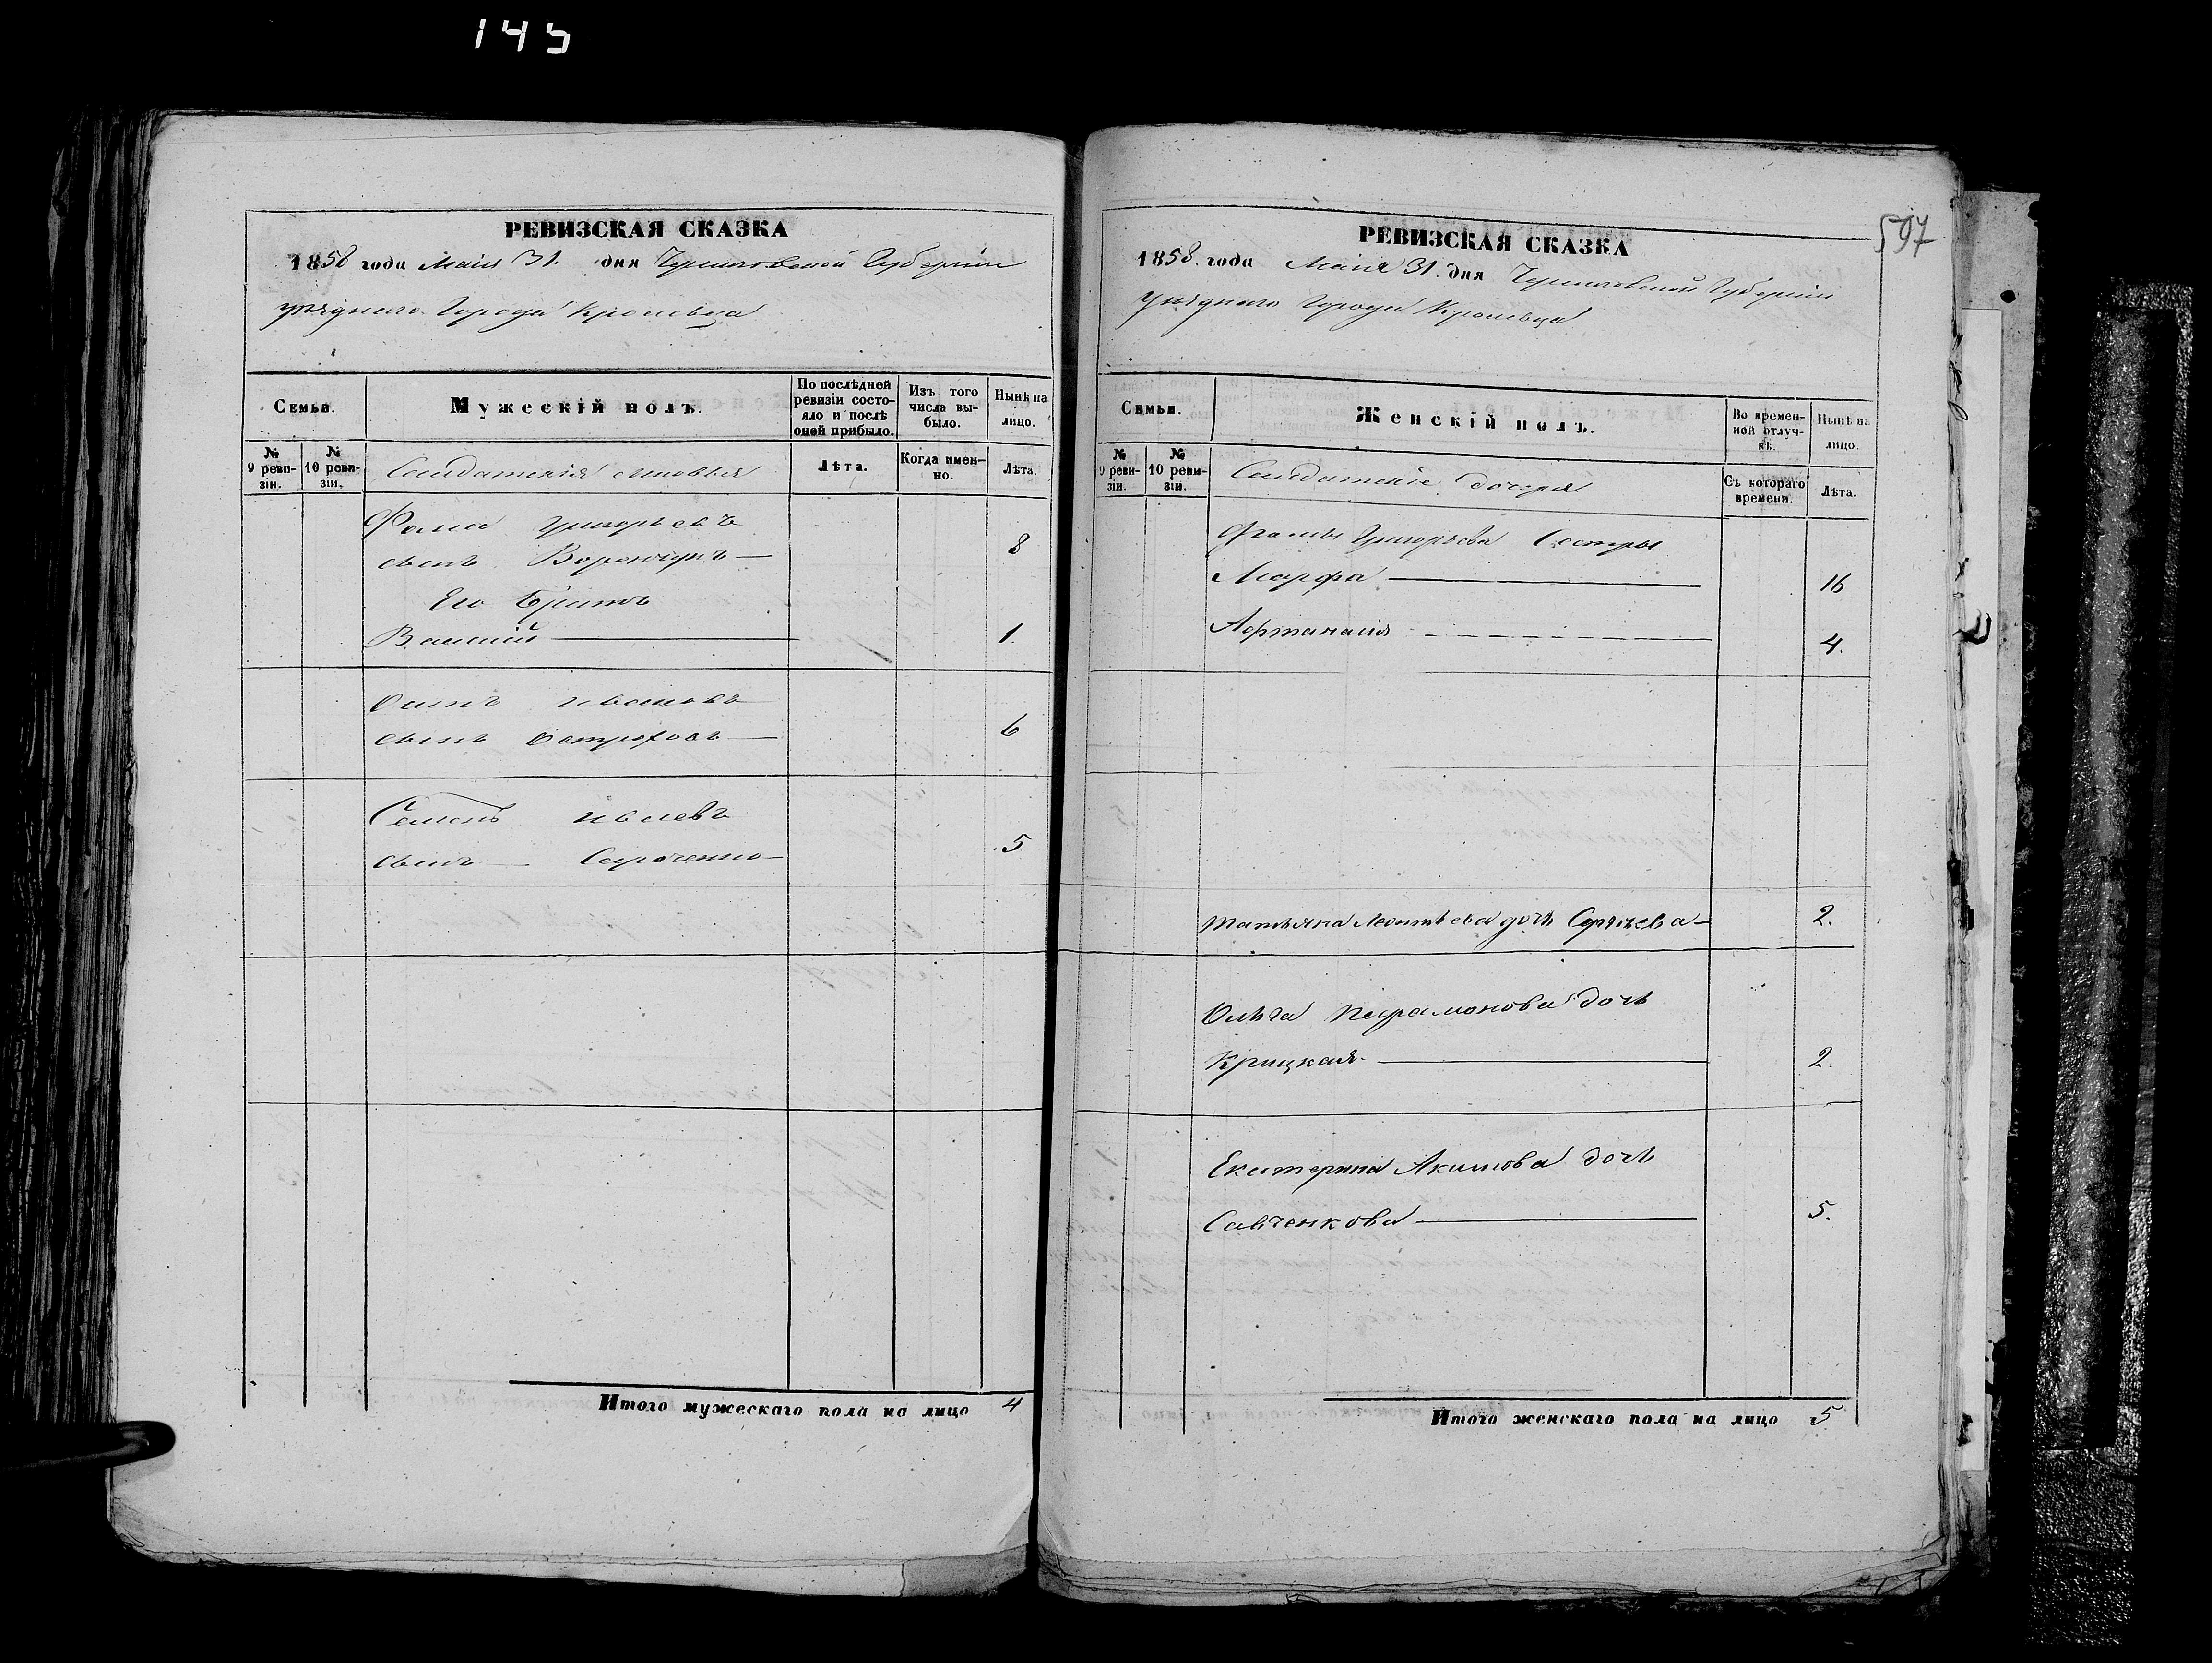 145
РЕВИЗСКАЯ СКАЗКА
1858 года Маія 31. дня Черниговской Губерніи
уѣзднаго Города Кролевца
Семьи.
Мужескій полъ.
По послѣдней ревизіи состояло и послѣ оной прибыло.
Изъ того числа выбыло.
Нынѣ на лицо.
№ 9 ревизіи.
№ 10 ревизіи.
Солдатскія сыновья
Лѣта.
Когда именно.
Лѣта.
Фома Григорьевъ
сынъ 8
Его братъ
Василій 1.
Осипъ Ивановъ
сынъ Остроховъ 6
Семенъ
сынъ 5
Итого мужескаго пола на лицо 4
597
РЕВИЗСКАЯ СКАЗКА
1858. года Маія 31. дня Черниговской Губерніи
уѣзднаго Города Кролевца
Семьи.
Женскій полъ.
Во временной отлучкѣ.
Нынѣ на лицо.
№ 9 ревизіи.
№ 10 ревизіи.
Солдатскіе дочеря
Съ котораго времени.
Лѣта.
Фомы Григорьева Сестры
Марфа 16
4.
Татьяна Леонтьева дочь 2.
Ольга Парамонова дочь
Крицкая 2.
Екатерина Акимова дочь
Савченкова 5.
Итого женскаго пола на лицо 5